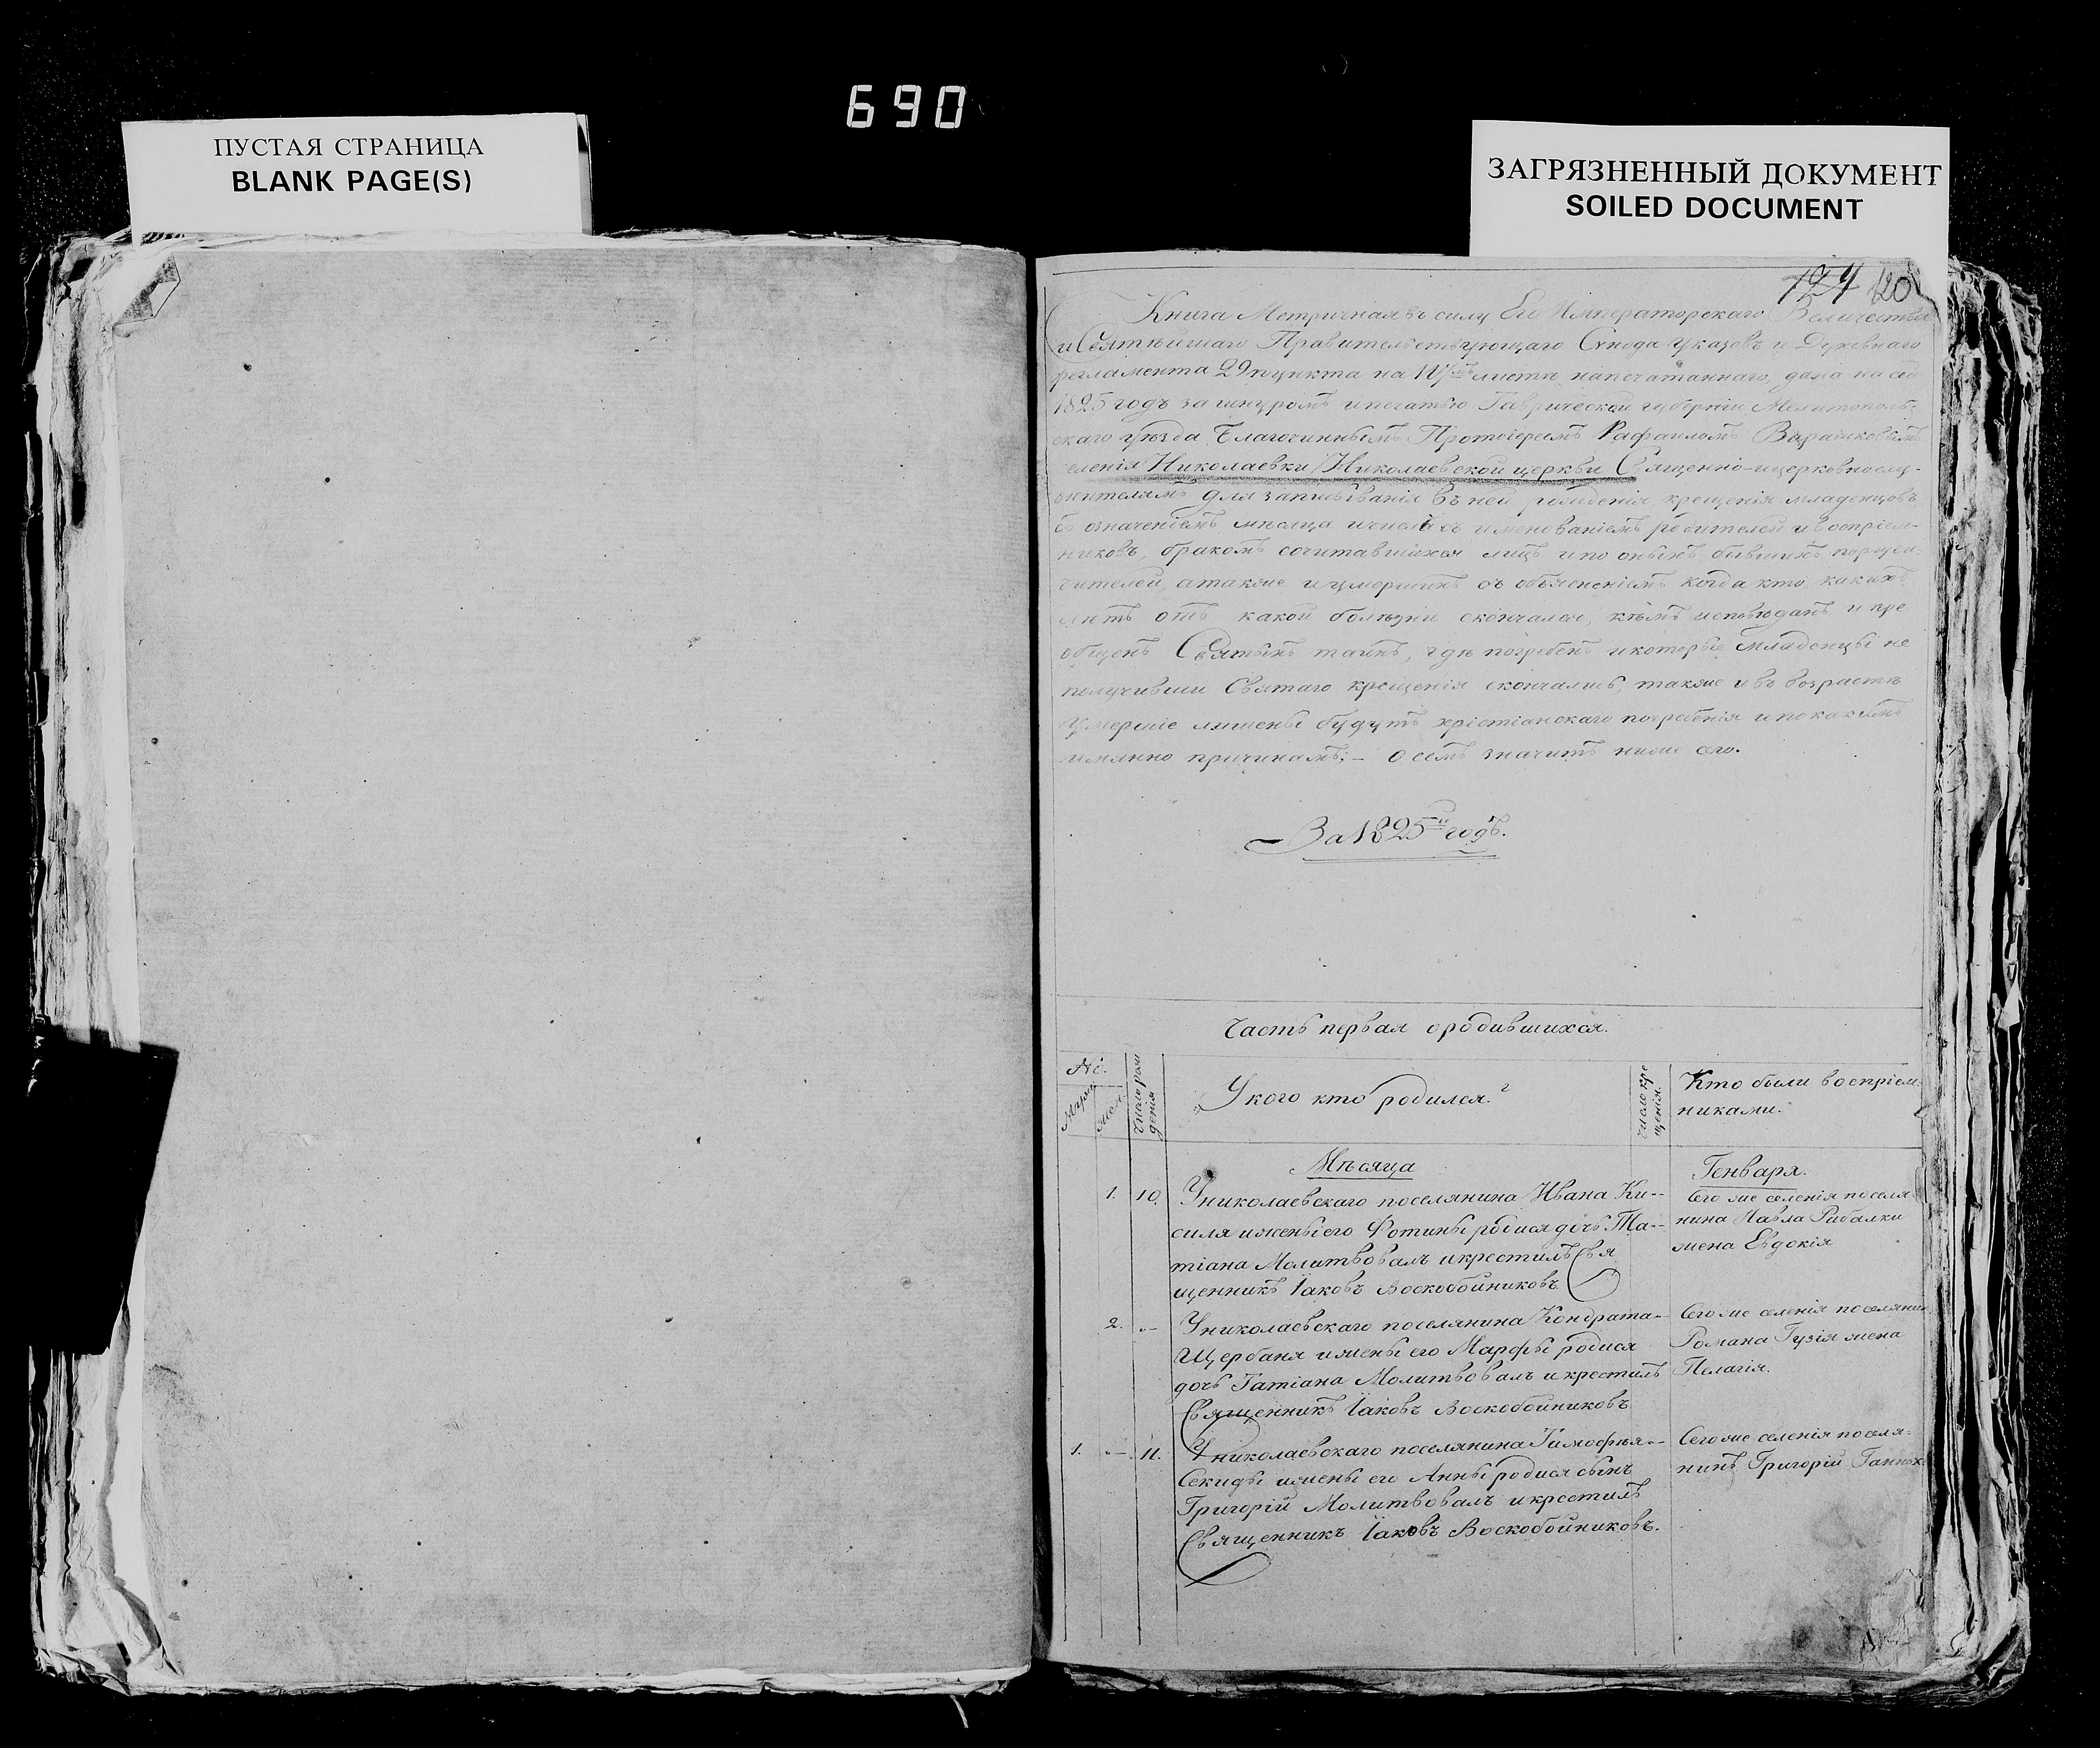 690
ПУСТАЯ СТРАНИЦА
BLANK PAGE(S)
ЗАГРЯЗНЕННЫЙ ДОКУМЕНТ
SOILED DOCUMENT
124 120
Книга Метричная въ силу Его Императорскаго Величества
и Святѣйшаго Правительствующаго Сѵнода указовъ и Духовнаго
регламента 29 пункта на листѣ напечатаннаго, дана на сей
1825 годъ за шнуромъ и печатью Таврической губерніи, Мелитополь-
скаго уѣзда Благочиннымъ Протоіереемъ Рафаиломъ
селенія Николаевки Николаевской церкви Священно-церковнослу-
жителямъ для записыванія въ ней рожденія, крещенія младенцовъ
съ означеніемъ мѣсяца и числа съ именованіемъ родителей и воспріем-
никовъ, бракомъ сочитавшихся лицъ и по онымъ бывшихъ поручи-
чителей, а также и умершихъ съ объясненіемъ когда кто какихъ
лѣтъ отъ какой болѣзни скончался, кѣмъ исповѣданъ и прі
общенъ Святыхъ таинъ, гдѣ погребенъ и которые младенцы не
получивши Святаго крещенія скончались, также и въ возрастѣ
умершіе лишены будутъ христіанскаго погребенія и по какимъ
имянно причинамъ; – о семъ значитъ ниже сего.
За 1825й годъ.
Часть первая о родившихся.
№.
Муж.
жен.
Число рож
денія
У кого кто родился?
Число кре
щенія.
Кто были воспріем-
никами.
Мѣсяца
Генваря.
1. 10. У николаевскаго поселянина Ивана Ки-
силя и жены его Фотины родися дочь Та-
тіана Молитвовалъ и крестилъ Свя
щенникъ Іаковъ Воскобойниковъ
Сего же селенія поселя
нина Павла Рибалки
жена Евдокія
2. - У николаевскаго поселянина Кондрата
Щербаня и жены его Марфы родися
дочь Татіана Молитвовалъ и крестилъ
Священникъ Іаковъ Воскобойниковъ
Сего же селенія поселянин
Романа Гузія жена
Пелагія.
1. - 11. У николаевскаго поселянина Тимофѣя
Секиды и жены его Анны родися сынъ
Григорій Молитвовалъ и крестилъ
Священникъ Іаковъ Воскобойниковъ.
Сего же селенія поселя-
нинъ Григорій